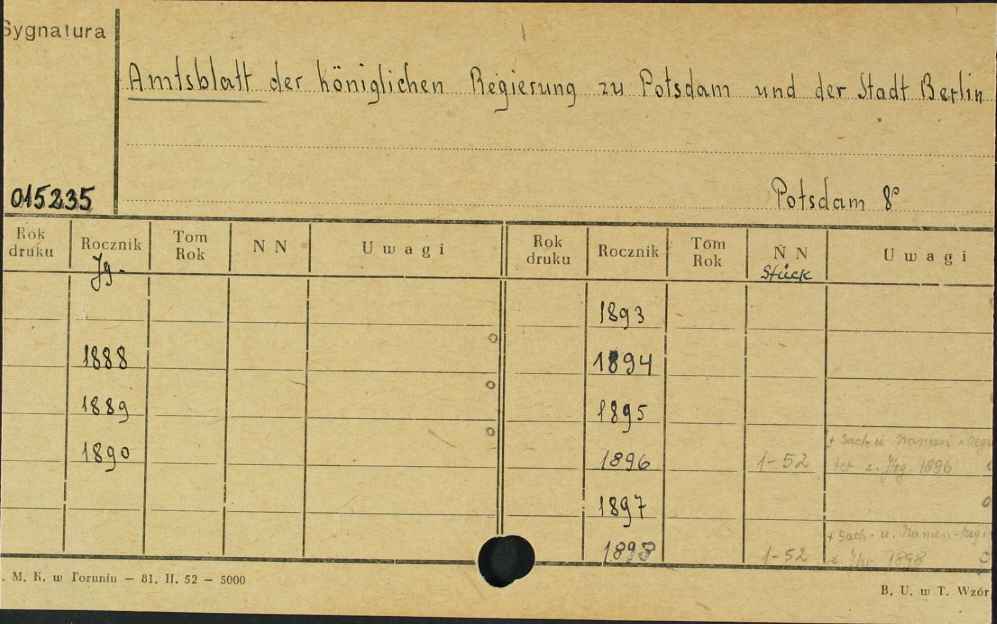 Sygnatura
Amtsblatt der königlichen Regierung zu Potsdam und der Stadt Berlin
015235
Potsdam 8°
Rok druku Rocznik Tom Rok N N Uwagi Rok druku Rocznik Tom Rok N N Uwagi
Jg. Stück
1893
1888 1894
1889 1895
1890 1896 1-52 + Sach u. Namen-Regi
ter z. Jhg. 1896
1897
1898 1-52 + Sach- u. Namen-Regi
z. Jhr. 1898
. M. K. w Toruniu — 81. II. 52 — 5000
B. U. w T. Wzór